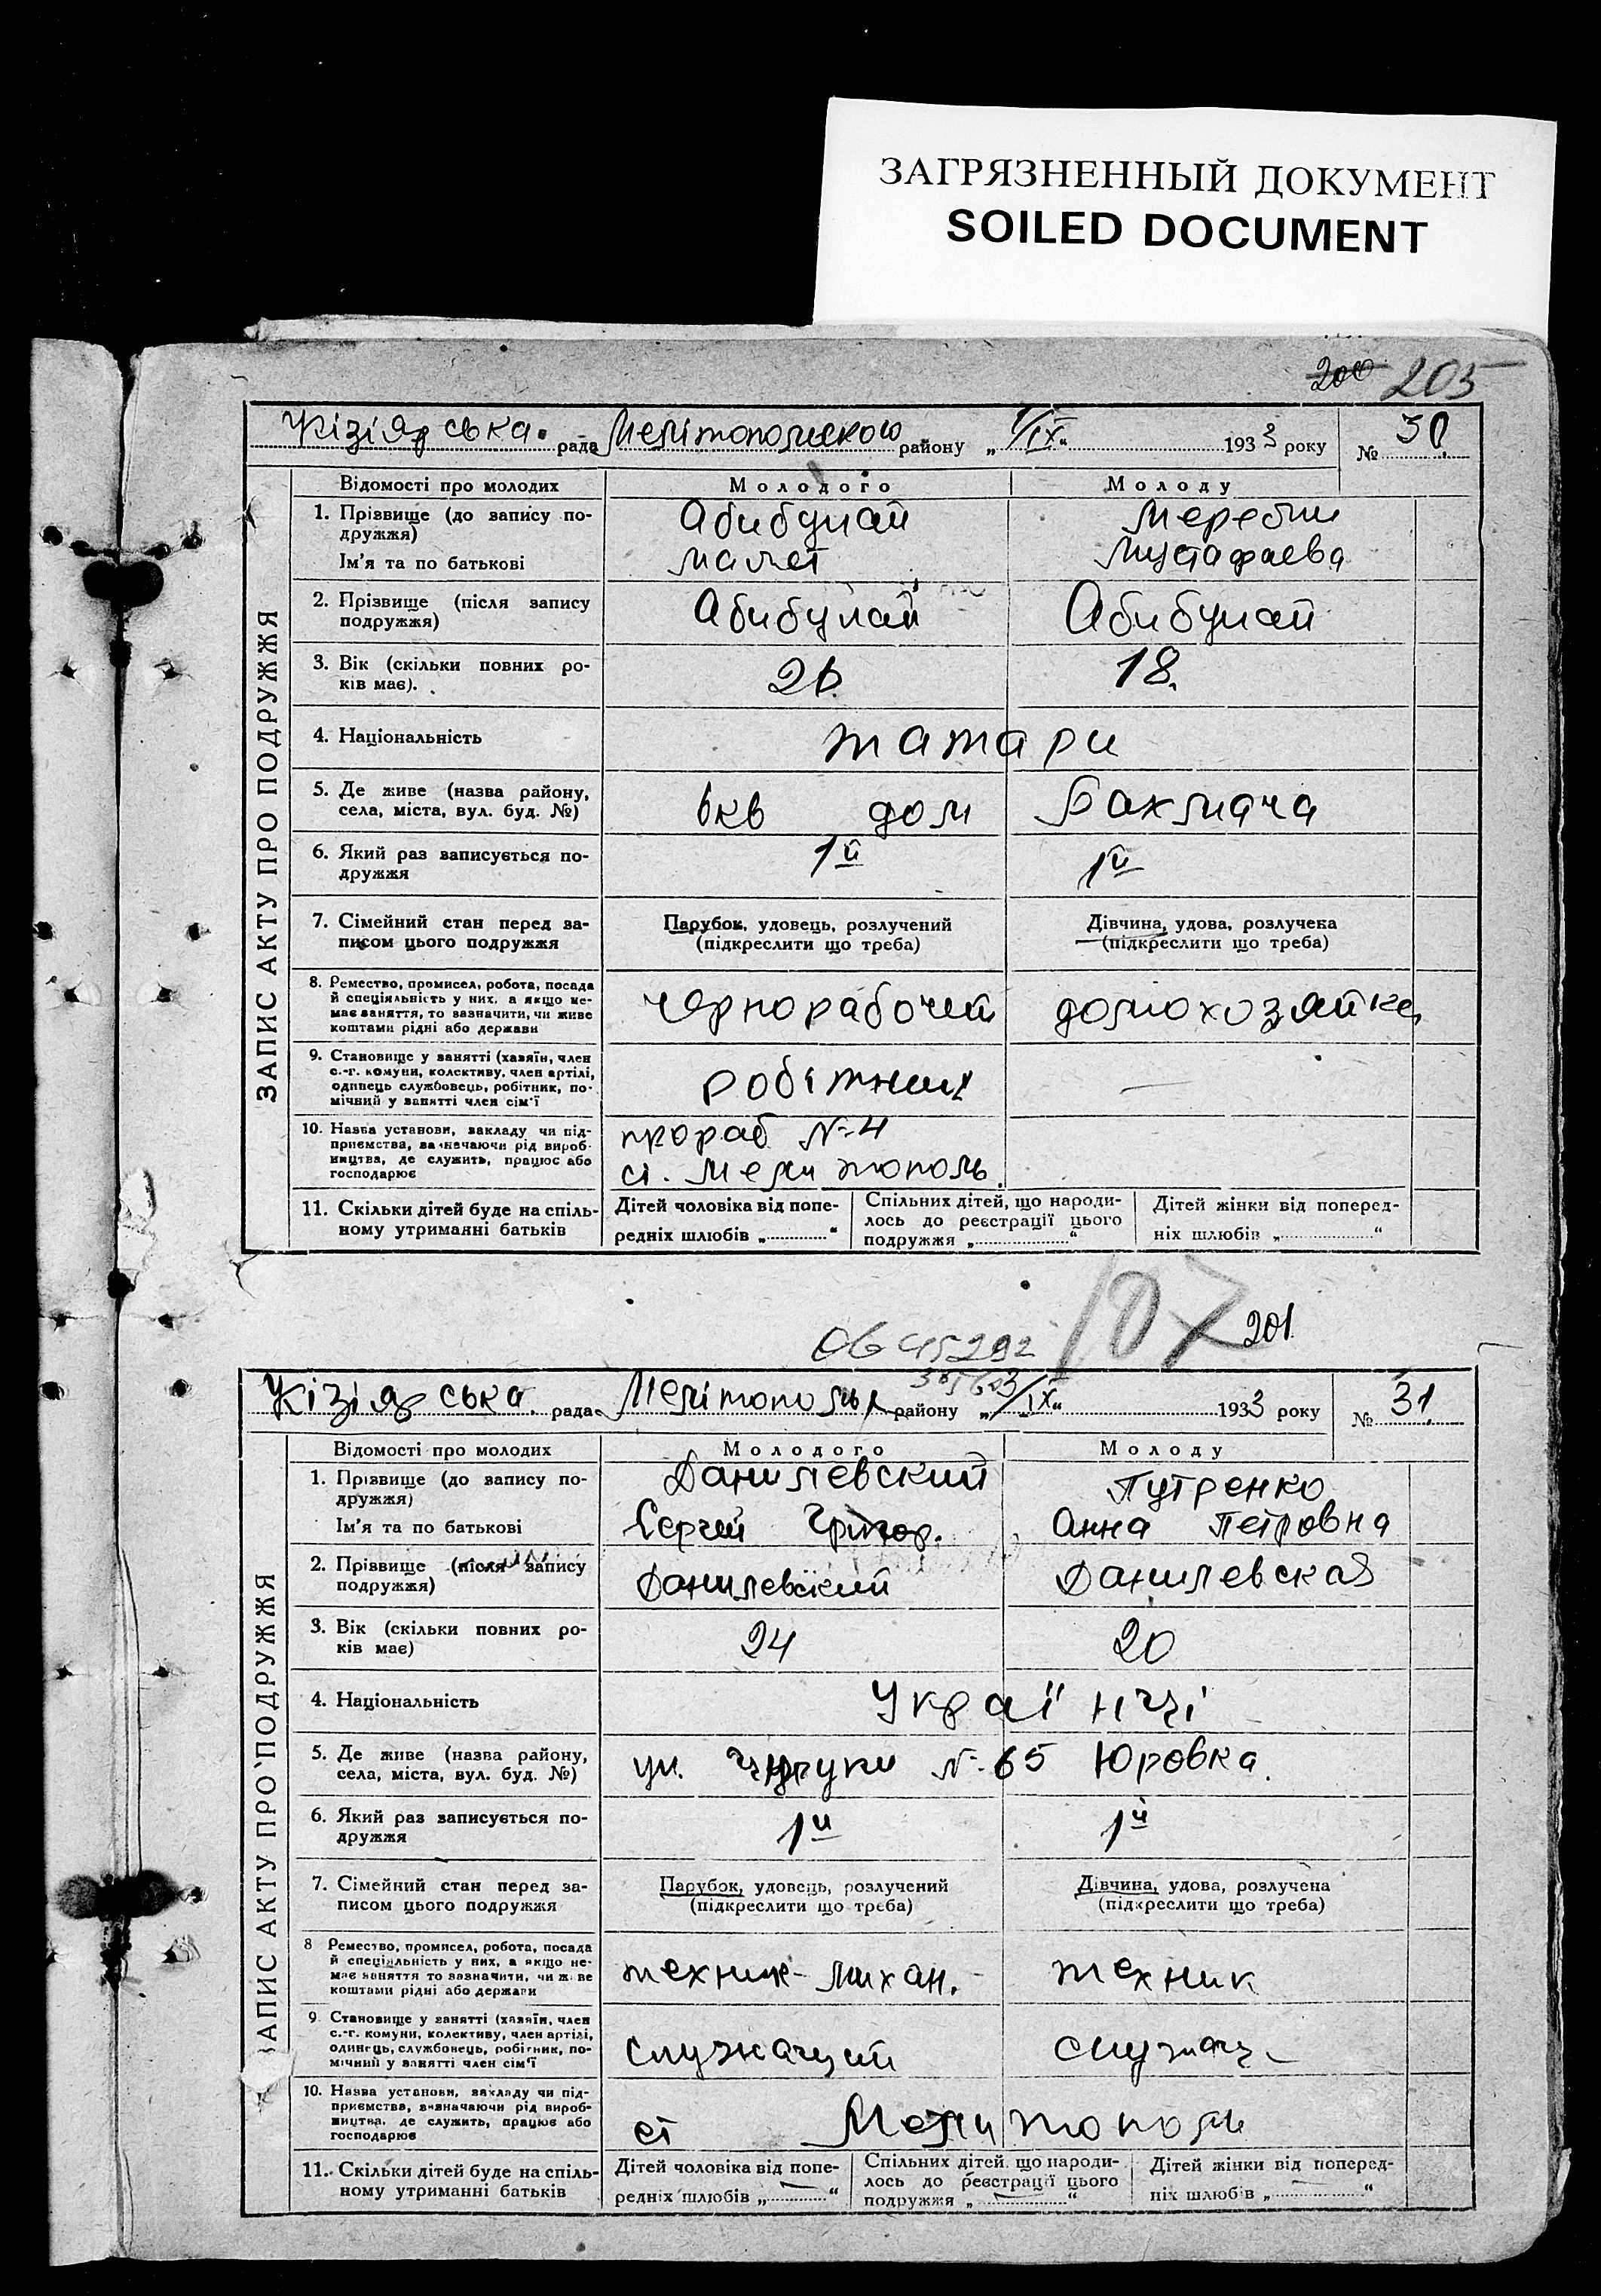 ЗАГРЯЗНЕННЫЙ ДОКУМЕНТ
SOILED DOCUMENT
200 205
Кізіярська рада Мелітопольского району „1/IX“ 1933 року № 30
ЗАПИС АКТУ ПРО ПОДРУЖЖЯ
Відомості про молодих Молодого Молоду
1. Прізвище (до запису по-
дружжя)
Ім'я та по батькові
Абибулай
Мамет
Мустафаева
2. Прізвище (після запису
подружжя)
Абибулай Абибулай
3. Вік (скільки повних ро-
ків має).
26. 18.
4. Національність
татари
5. Де живе (назва району,
села, міста, вул. буд. №)
6кв дом Бахмача
6. Який раз записується по-
дружжя
1й 1й
7. Сімейний стан перед за-
писом цього подружжя
Парубок, удовець, розлучений
(підкреслити що треба)
Дівчина, удова, розлучека
(підкреслити що треба)
8. Ремество, промисел, робота, посада
й спеціяльність у них, а якщо не-
має заняття, то зазначити, чи живе
коштами рідні або держави
чернорабочей домохозяйка
9. Становище у занятті (хазяїн, член
с.-г. комуни, колективу, член артілі,
одинець службовець, робітник, по-
мічний у занятті член сім'ї
робітник —
10. Назва установи, закладу чи під-
приємства, зазначаючи рід вироб-
ництва, де служить, працює або
господарює
прораб №4
ст. Мелитополь
11. Скільки дітей буде на спіль-
ному утриманні батьків
Дітей чоловіка від попе-
редніх шлюбів „ “
Спільних дітей, що народи-
лось до реєстрації цього
подружжя „ “
Дітей жінки від поперед-
ніх шлюбів „ “
107 201
Об 45292
Кізіярська рада Мелітопольс району „3/IX“ 1933 року № 31
ЗАПИС АКТУ ПРО ПОДРУЖЖЯ
Відомості про молодих Молодого Молоду
1. Прізвище (до запису по-
дружжя)
Ім'я та по батькові
Данилевский
Сергей Григор.
Путренко
Анна Петровна
2. Прізвище (після запису
подружжя)
Данилевский Данилевская
3. Вік (скільки повних ро-
ків має)
24 20
4. Національність
Українці
5. Де живе (назва району,
села, міста, вул. буд. №)
ул. №65 Юровка
6. Який раз записується по-
дружжя
1й 1й
7. Сімейний стан перед за-
писом цього подружжя
Парубок, удовець, розлучений
(підкреслити що треба)
Дівчина, удова, розлучена
(підкреслити що треба)
8 Ремество, промисел, робота, посада
й спеціяльність у них, а якщо не-
має заняття то зазначити, чи живе
коштами рідні або держави
техник-михан. техник
9. Становище у занятті (хазяїн, член
с.-г. комуни, колективу, член артілі,
одинець, службовець, робітник, по-
мічний у занятті член сім'ї
служащий служащ
10. Назва установи, закладу чи під-
приємства, зазначаючи рід вироб-
ництва, де служить, працює або
господарює
ст Мелитополь
11. Скільки дітей буде на спіль-
ному утриманні батьків
Дітей чоловіка від попе-
редніх шлюбів „ “
Спільних дітей, що народи-
лось до реєстрації цього
подружжя „ “
Дітей жінки від поперед-
ніх шлюбів „ “